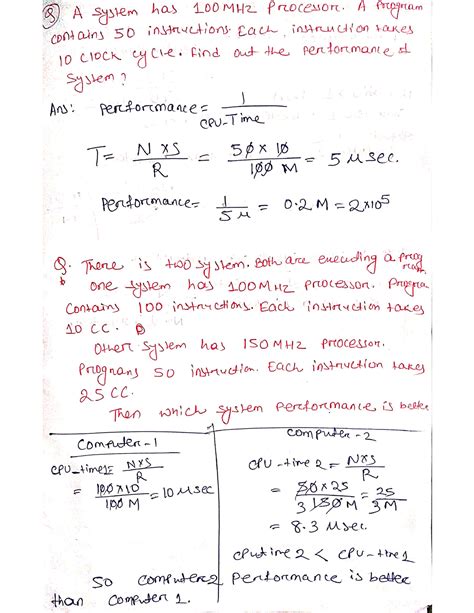 Q A System has 100MHz Processor. A Program
contains 50 instructions. Each instruction takes
10 clock cycle. find out the performance of
System?
Ans: performance = 1 / CPU-Time
T = N×S / R = 50×10 / 100 M = 5 μsec.
Performance = 1 / 5μ = 0.2M = 2×10⁵
Q. There is two system. Both are executing a prog
ram.
one system has 100MHz processor. Progra
contains 100 instructions. Each instruction takes
10 CC.
Other System has 150MHz processor.
Programs 50 instruction. Each instruction takes
25 CC.
Then which system performance is better
Computer-1
CPU-time1 = N×S / R
= 100×10 / 100 M = 10 μsec
Computer-2
CPU-time 2 = N×S / R
= 50×25 / 150 M = 25 / 3M
3
= 8.3 μsec.
CPU time 2 < CPU-time 1
So computer 2 Performance is better
than computer 1.